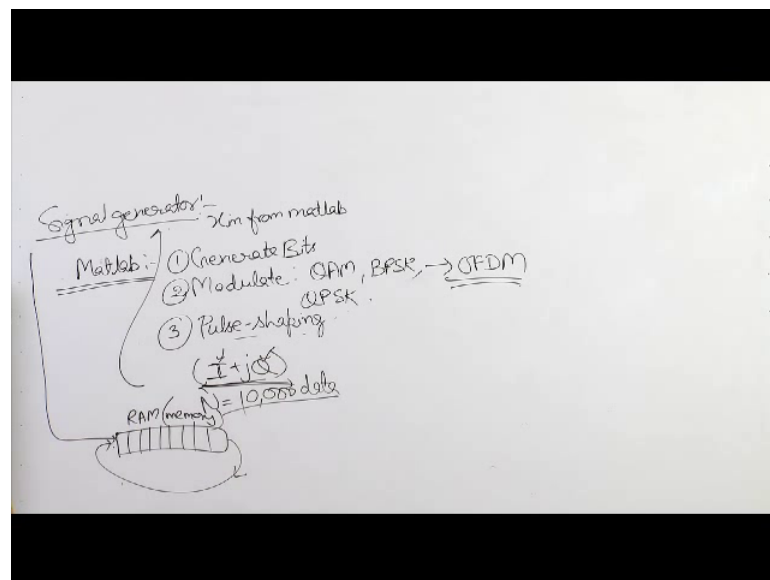 Signal generator:-
Xin from matlab
Matlab:- ① Generate Bits
② Modulate: QAM, BPSK, → OFDM
QPSK.
③ Pulse-shaping
(I+jQ)
N = 10,000 data
RAM (memory)